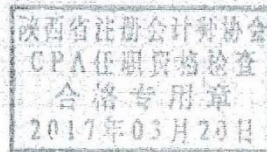 陕西省注册会计师协会
CPA任职资格检查
合格专用章
2017年03月28日